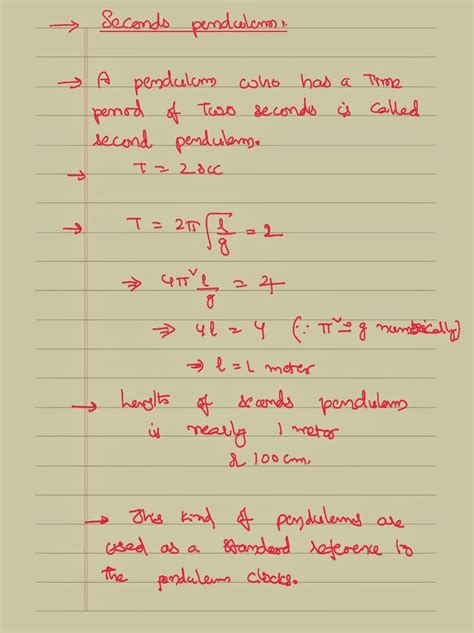 → Seconds pendulum:
→ A pendulum who has a Time
period of Two seconds is called
second pendulum.
→ T = 2 sec
→ T = 2π√(l/g) = 2
⇒ 4π² l/g = 4
⇒ 4l = 4 (∵ π² = g numerically)
⇒ l = 1 meter
→ Length of seconds pendulum
is nearly 1 meter
& 100 cm.
→ This kind of pendulums are
used as a standard reference to
the pendulum clocks.